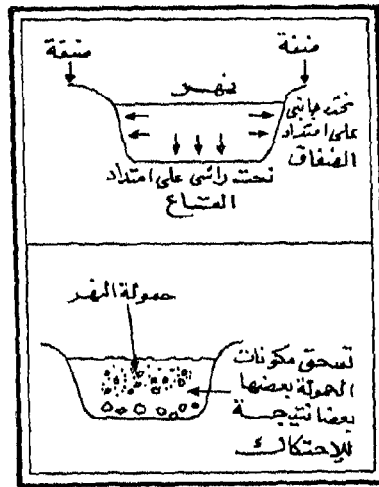 ضفة
ضفة
نهر
نحت جانبي
على امتداد
الضفاف
نحت رأسي على امتداد
القاع
حمولة النهر
تسحق مكونات
الحمولة بعضها
بعضا نتيجة
للإحتكاك